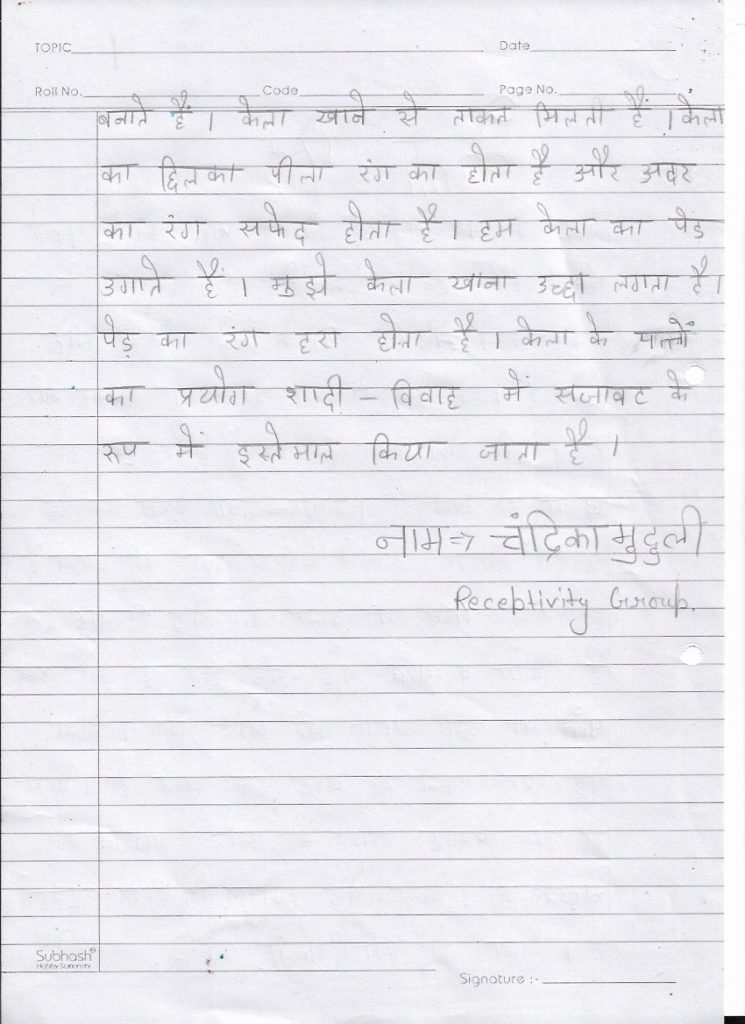 TOPIC Date
Roll No. Code Page No.
बनाते हैं । केला खाने से ताकत मिलती हैं । केला
का छिलका पीला रंग का होता है और अदर
का रंग सफेद होता है । हम केला का पेड़
उगाते हैं । मुझे केला खाना उच्छा लगता है ।
पेड़ का रंग हरा होता है । केला के पत्तों
का प्रयोग शादी - विवाह में सजावट के
रूप में इस्तेमाल किया जाता है ।
नाम => चंद्रिका मुदुली
Receptivity Group.
Subhash
Hobby Stationery
Signature :-